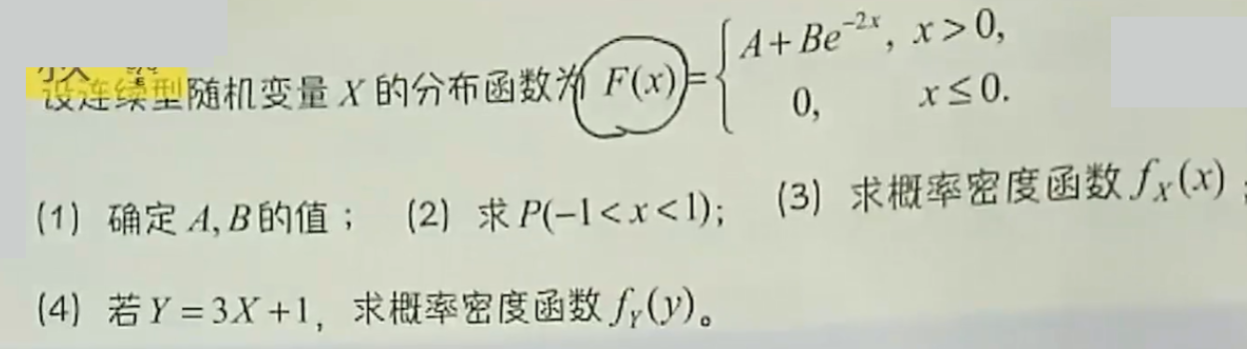 设连续型随机变量 X 的分布函数为 F(x)={ A+Be^{-2x}, x>0,
0, x≤0.
(1) 确定 A, B 的值； (2) 求 P(-1<x<1); (3) 求概率密度函数 f_X(x);
(4) 若 Y=3X+1, 求概率密度函数 f_Y(y)。